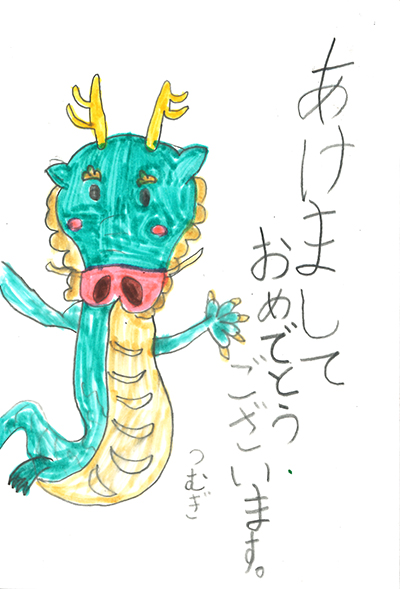 あけまして
おめでとう
ございます。
つむぎ